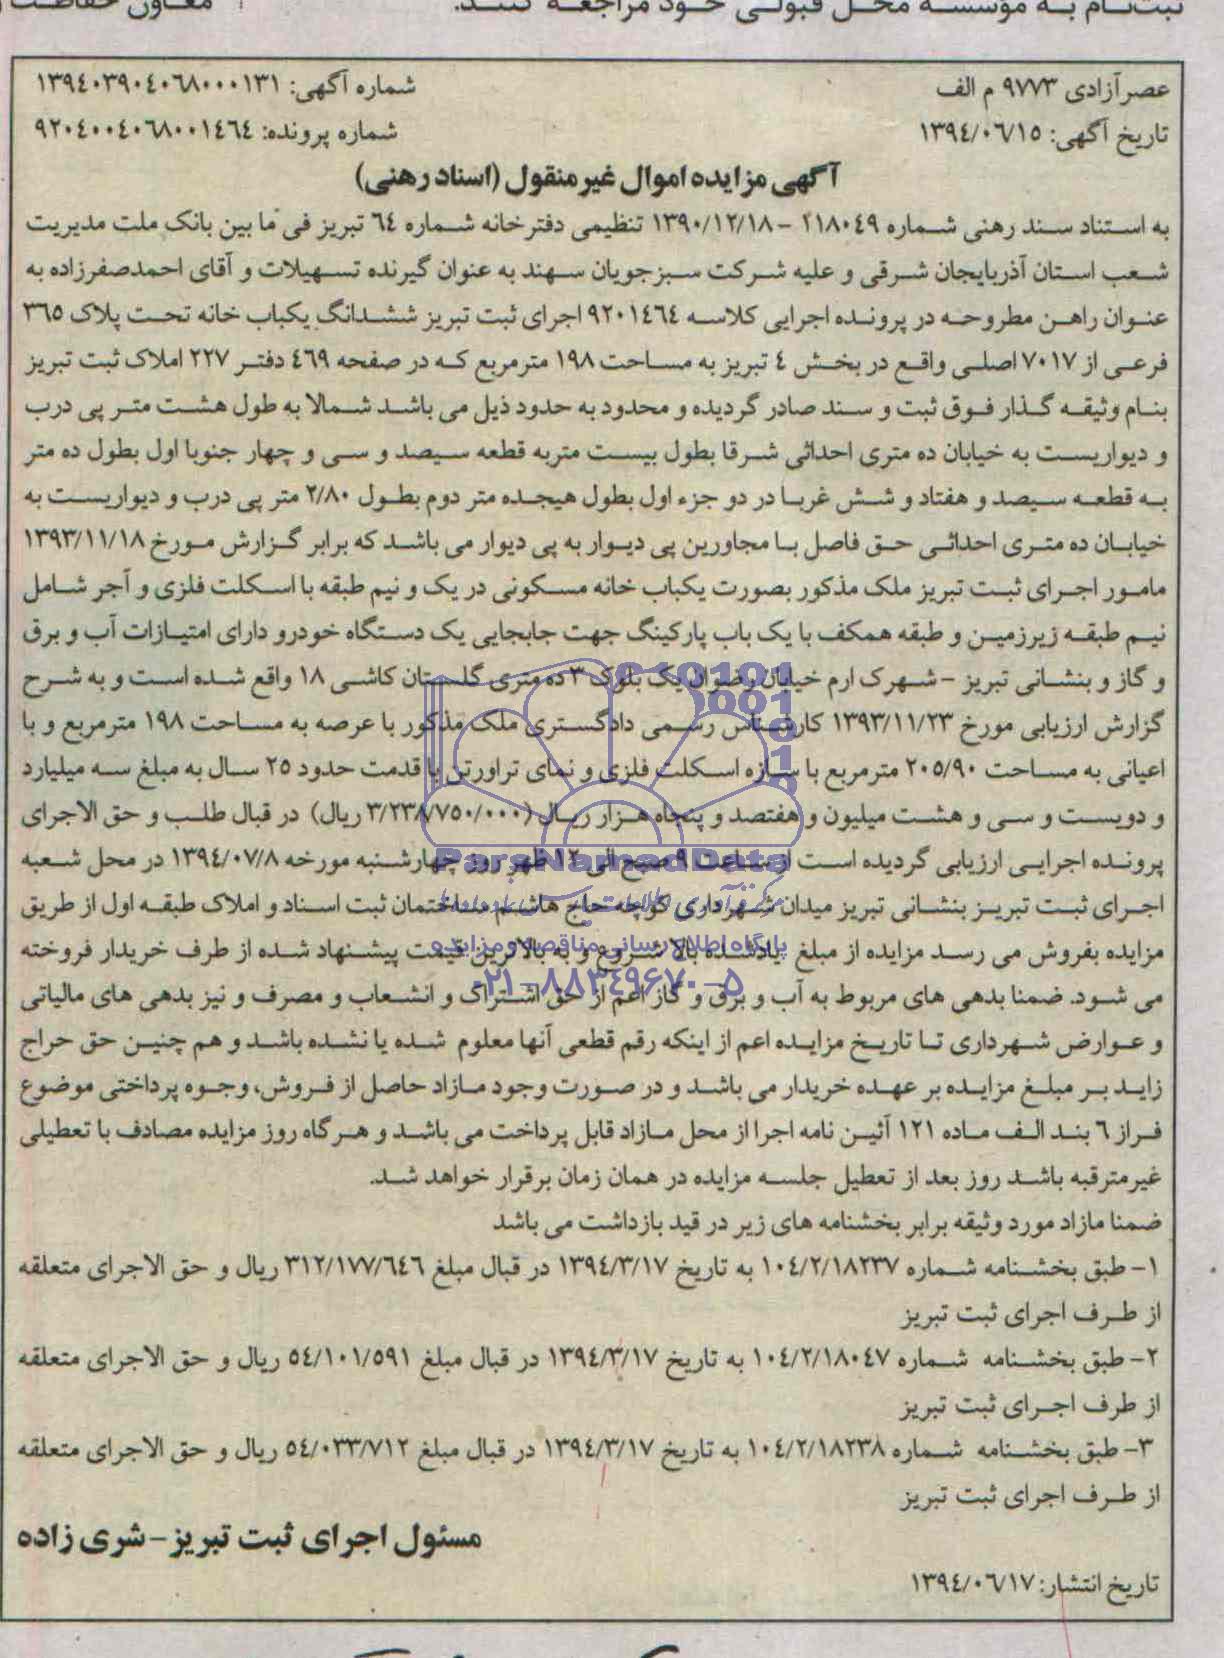 ثبت‌نام به مؤسسه محل قبولی خود مراجعه کنند.
معاون حفاظت
عصر آزادی ۹۷۷۳ م الف
شماره آگهی: ۱۳۹٤۰۳۹۰٤۰٦۸۰۰۰۱۳۱
تاریخ آگهی: ۱۳۹٤/۰٦/۱٥
شماره پرونده: ۹۲۰٤۰۰٤۰٦۸۰۰۱٤٦٤
آگهی مزایده اموال غیر منقول (اسناد رهنی)
به استناد سند رهنی شماره ۲۱۸۰٤۹ - ۱۳۹۰/۱۲/۱۸ تنظیمی دفترخانه شماره ٦٤ تبریز فی ما بین بانک ملت مدیریت
شعب استان آذربایجان شرقی و علیه شرکت سبزجویان سهند به عنوان گیرنده تسهیلات و آقای احمدصفرزاده به
عنوان راهن مطروحه در پرونده اجرایی کلاسه ۹۲۰۱٤٦٤ اجرای ثبت تبریز ششدانگ یکباب خانه تحت پلاک ۳٦٥
فرعی از ۷۰۱۷ اصلی واقع در بخش ٤ تبریز به مساحت ۱۹۸ مترمربع که در صفحه ٤٦۹ دفتر ۲۲۷ املاک ثبت تبریز
بنام وثیقه گذار فوق ثبت و سند صادر گردیده و محدود به حدود ذیل می باشد شمالا به طول هشت متر پی درب
و دیواریست به خیابان ده متری احداثی شرقا بطول بیست متربه قطعه سیصد و سی و چهار جنوبا اول بطول ده متر
به قطعه سیصد و هفتاد و شش غربا در دو جزء اول بطول هیجده متر دوم بطول ۲/۸۰ متر پی درب و دیواریست به
خیابان ده متری احداثی حق فاصل با مجاورین پی دیوار به پی دیوار می باشد که برابر گزارش مورخ ۱۳۹۳/۱۱/۱۸
مامور اجرای ثبت تبریز ملک مذکور بصورت یکباب خانه مسکونی در یک و نیم طبقه با اسکلت فلزی و آجر شامل
نیم طبقه زیرزمین و طبقه همکف با یک باب پارکینگ جهت جابجایی یک دستگاه خودرو دارای امتیازات آب و برق
و گاز و بنشانی تبریز - شهرک ارم خیابان رضوان یک بلوک ۳ ده متری گلستان کاشی ۱۸ واقع شده است و به شرح
گزارش ارزیابی مورخ ۱۳۹۳/۱۱/۲۳ کارشناس رسمی دادگستری ملک مذکور با عرصه به مساحت ۱۹۸ مترمربع و با
اعیانی به مساحت ۲۰٥/۹۰ مترمربع با سازه اسکلت فلزی و نمای تراورتن با قدمت حدود ۲٥ سال به مبلغ سه میلیارد
و دویست و سی و هشت میلیون و هفتصد و پنجاه هزار ریال (۳/۲۳۸/۷٥۰/۰۰۰ ریال) در قبال طلب و حق الاجرای
پرونده اجرایی ارزیابی گردیده است از ساعت ۹ صبح الی ۱۲ ظهر روز چهارشنبه مورخه ۱۳۹٤/۰۷/۸ در محل شعبه
اجرای ثبت تبریز بنشانی تبریز میدان شهرداری کوچه حاج هاشم ساختمان ثبت اسناد و املاک طبقه اول از طریق
مزایده بفروش می رسد مزایده از مبلغ یادشده بالا شروع و به بالاترین قیمت پیشنهاد شده از طرف خریدار فروخته
می شود. ضمنا بدهی های مربوط به آب و برق و گاز اعم از حق اشتراک و انشعاب و مصرف و نیز بدهی های مالیاتی
و عوارض شهرداری تا تاریخ مزایده اعم از اینکه رقم قطعی آنها معلوم شده یا نشده باشد و هم چنین حق حراج
زاید بر مبلغ مزایده بر عهده خریدار می باشد و در صورت وجود مازاد حاصل از فروش، وجوه پرداختی موضوع
فراز ٦ بند الف ماده ۱۲۱ آئین نامه اجرا از محل مازاد قابل پرداخت می باشد و هرگاه روز مزایده مصادف با تعطیلی
غیرمترقبه باشد روز بعد از تعطیل جلسه مزایده در همان زمان برقرار خواهد شد.
ضمنا مازاد مورد وثیقه برابر بخشنامه های زیر در قید بازداشت می باشد
۱- طبق بخشنامه شماره ۱۰٤/۲/۱۸۲۳۷ به تاریخ ۱۳۹٤/۳/۱۷ در قبال مبلغ ۳۱۲/۱۷۷/٦٤٦ ریال و حق الاجرای متعلقه
از طرف اجرای ثبت تبریز
۲- طبق بخشنامه شماره ۱۰٤/۲/۱۸۰٤۷ به تاریخ ۱۳۹٤/۳/۱۷ در قبال مبلغ ٥٤/۱۰۱/٥۹۱ ریال و حق الاجرای متعلقه
از طرف اجرای ثبت تبریز
۳- طبق بخشنامه شماره ۱۰٤/۲/۱۸۲۳۸ به تاریخ ۱۳۹٤/۳/۱۷ در قبال مبلغ ٥٤/۰۳۳/۷۱۲ ریال و حق الاجرای متعلقه
از طرف اجرای ثبت تبریز
مسئول اجرای ثبت تبریز - شری زاده
تاریخ انتشار: ۱۳۹٤/۰٦/۱۷
ParsNamadData
پایگاه اطلاع رسانی مناقصه و مزایده
۰۲۱-۸۸۳٤۹٦۷۰-۵